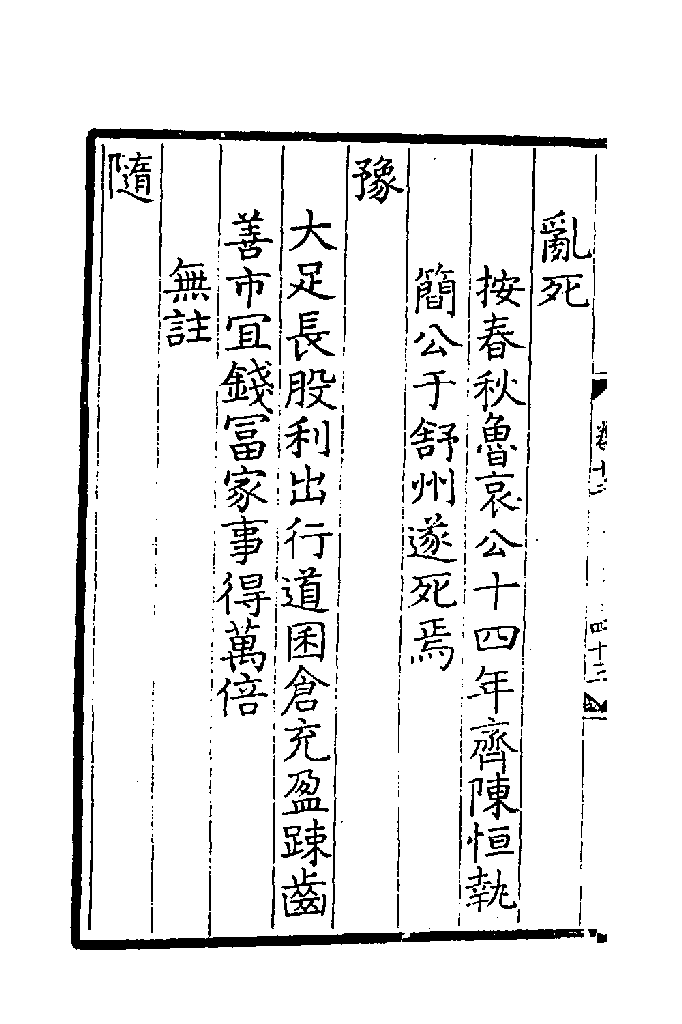 亂死
按春秋魯哀公十四年齊陳恒執
簡公于舒州遂死焉
豫
大足長股利出行道囷倉充盈踈齒
善市冝錢冨家事得萬倍
無註
隨